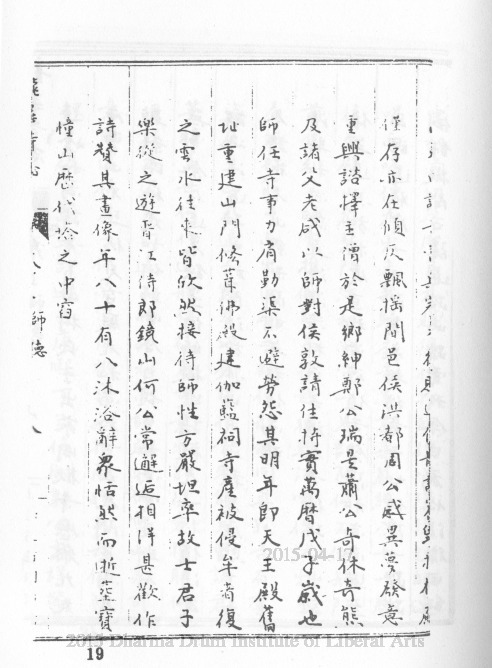 僅存亦在傾仄飄搖間邑侯洪都周公感異夢發意
重興諮擇主僧於是鄉紳鄭公瑞星蕭公奇休奇熊
及諸父老咸以師對侯敦請住持實萬曆戊子歲也
師任寺事力肩勤渠不避勞怨其明年即天王殿舊
址重建山門修葺佛殿建伽藍祠寺產被侵牟者復
之雲水往來皆欣然接待師性方嚴坦率故士君子
樂從之遊晉江侍郎鏡山何公常邂逅相洋甚歡作
詩贊其畫像年八十有八沐浴辭眾恬然而逝塟寶
幢山歷代塔之中窟
師德
八
19
2015-04-17
2015 Dharma Drum Institute of Liberal Arts